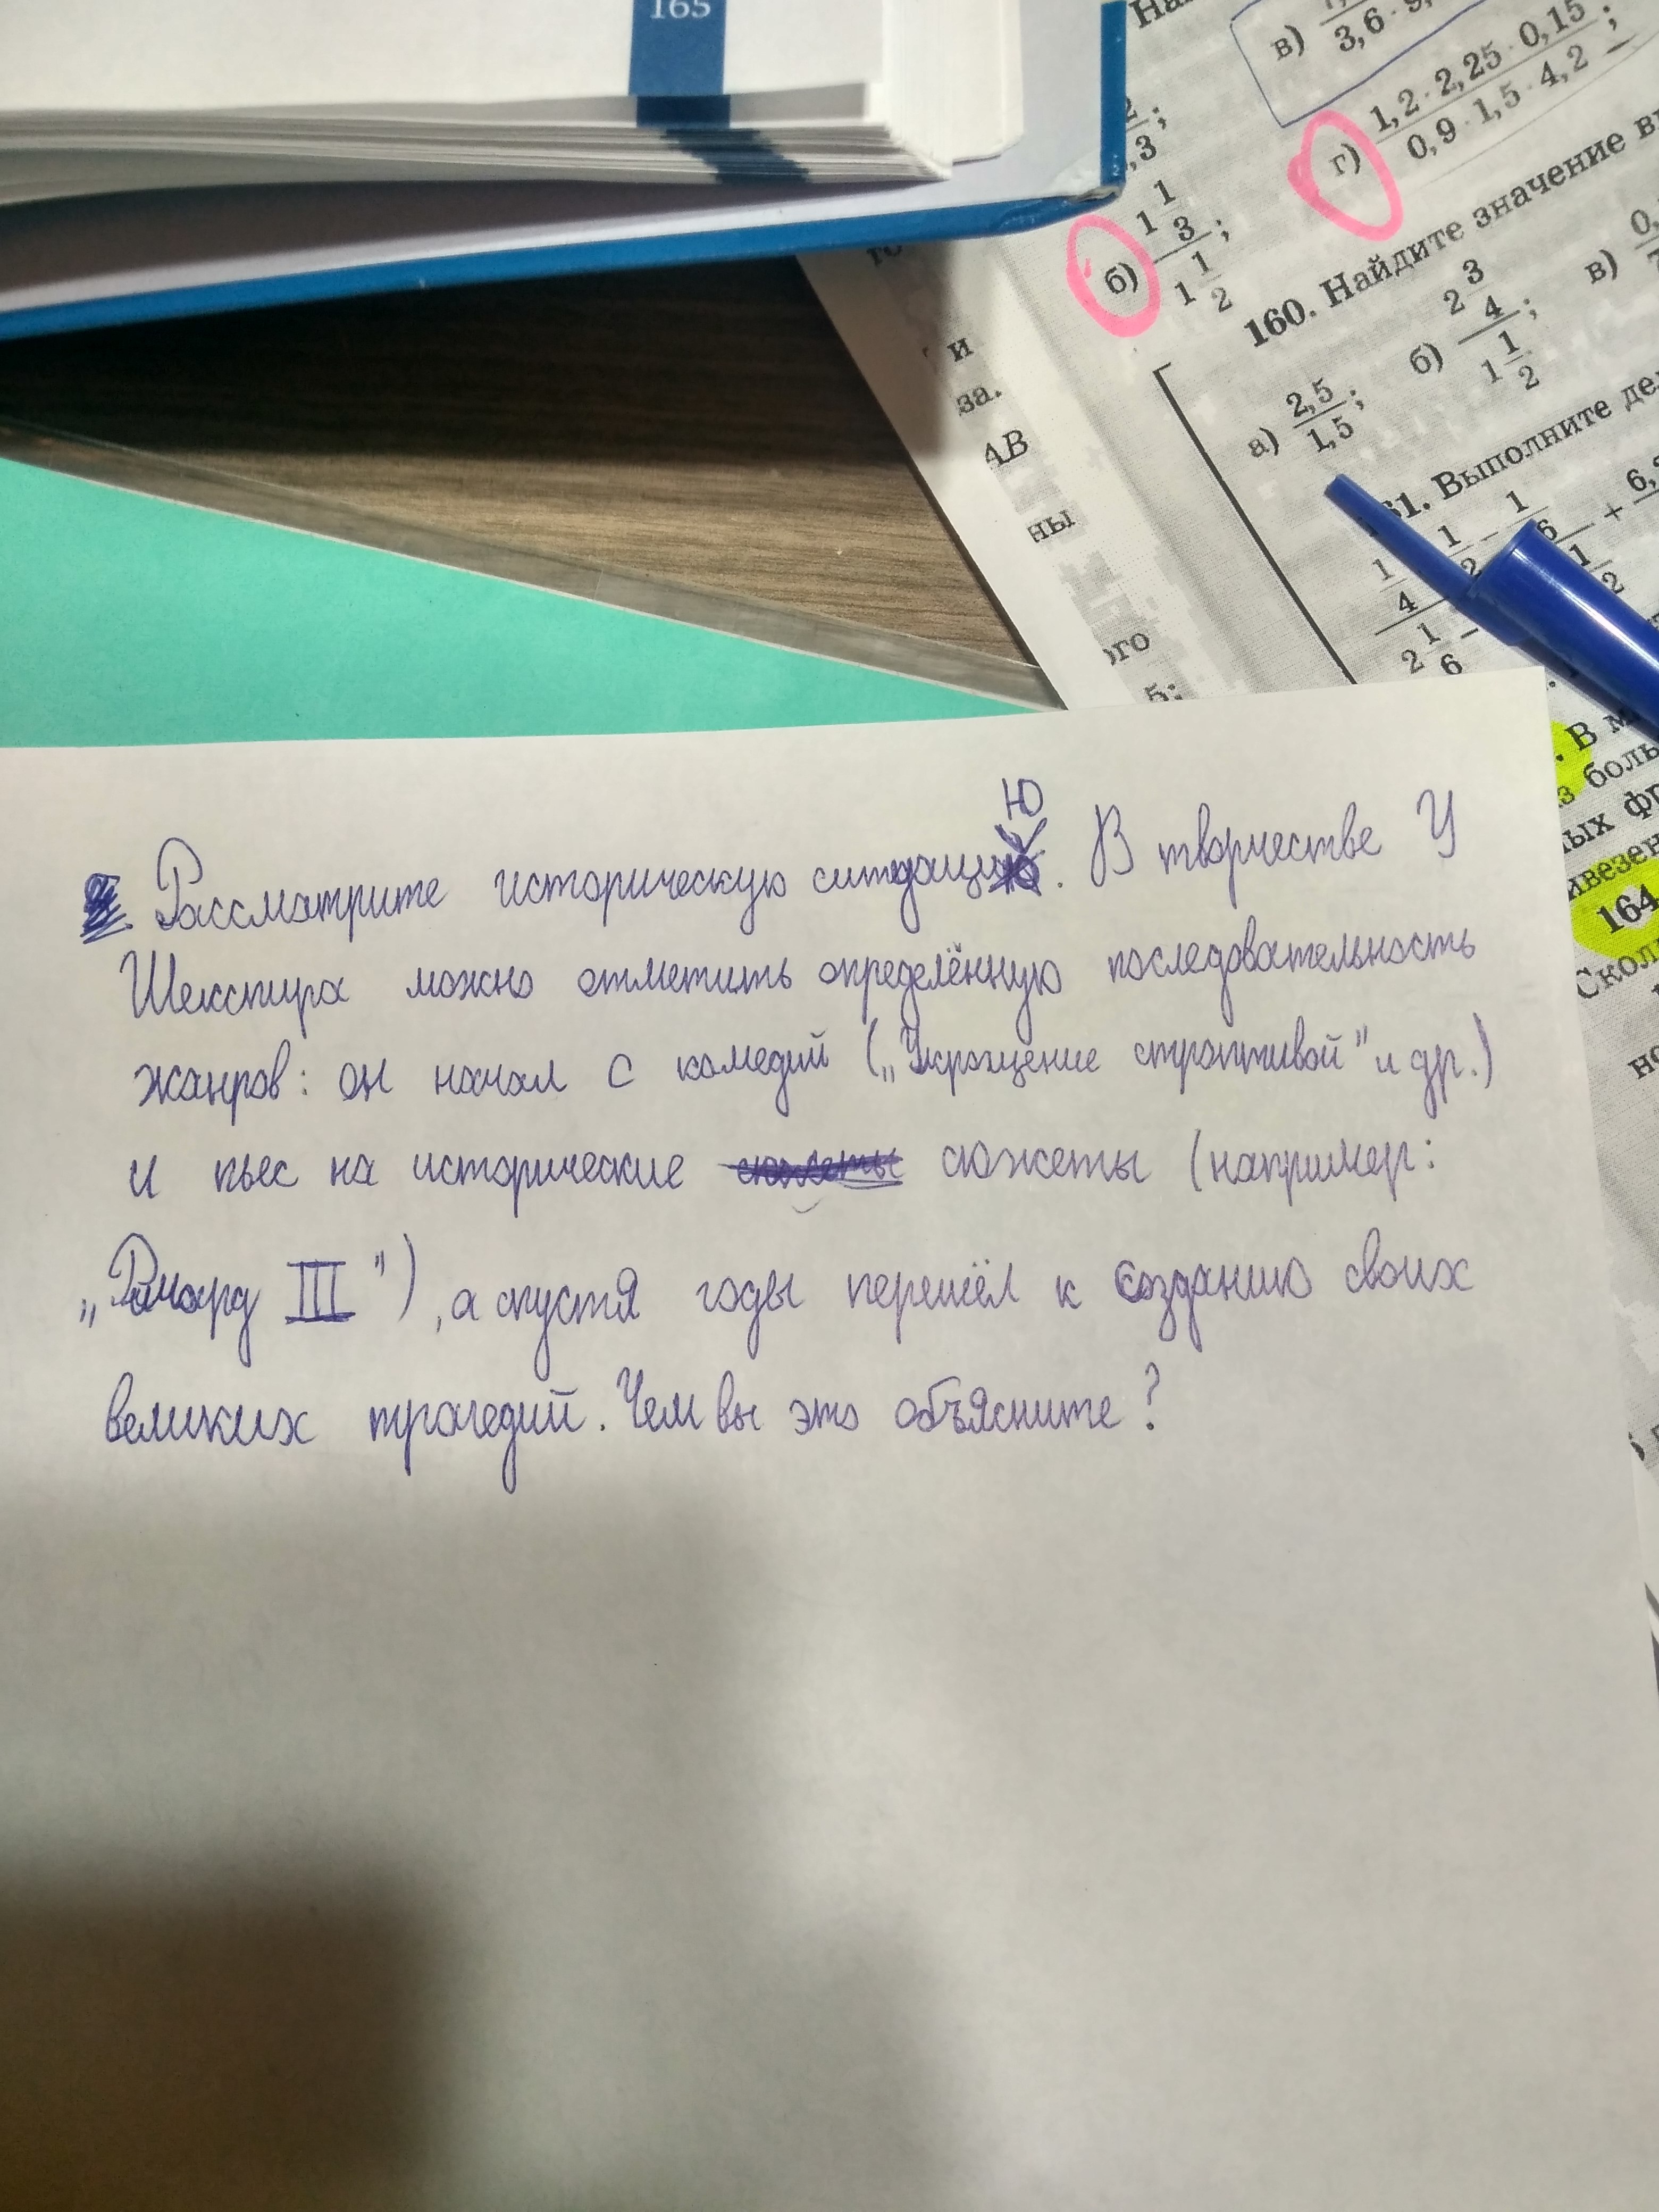 165
в)
3,6 · 9,
1,2 · 2,25 · 0,15
г)
;
0,9 · 1,5 · 4,2
,3
;
б)
1 1/3
;
1 1/2
160. Найдите значение
а) 2,5/1,5;
б) 2 3/4
;
1 1/2
в)
61. Выполните
1/4
1/2
1/6
+
2 1/6 −
1/2
и
за.
АВ
ны
ого
5;
. В
боль
164
Скол
Рассмотрите историческую ситуацию. В творчестве У
Шекспира можно отметить определённую последовательность
жанров: он начал с комедий („Укрощение строптивой" и др.)
и пьес на исторические сюжеты сюжеты (например:
„Ричард III"), а спустя годы перешёл к созданию своих
великих трагедий. Чем вы это объясните?